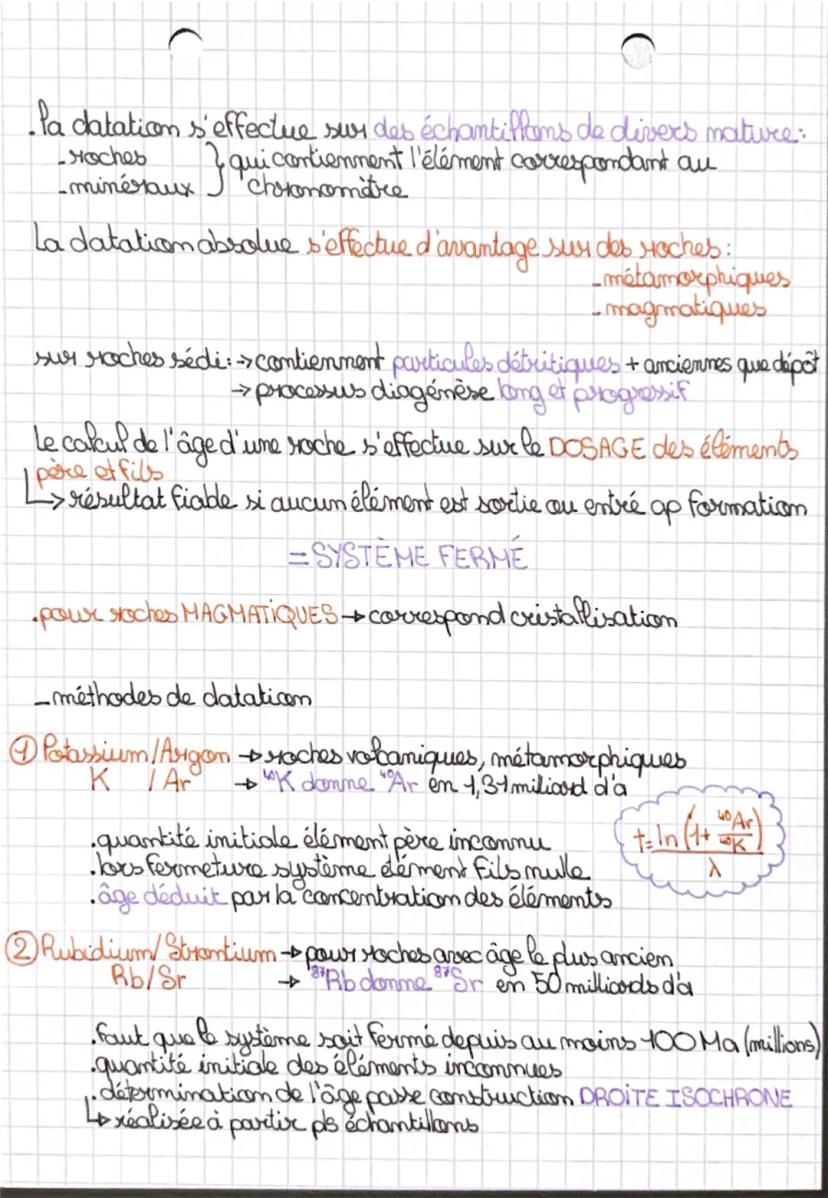 .la datation s'effectue sur des échantillons de divers nature:
-roches } qui contiennent l'élément correspondant au
-minéraux chronomètre
La datation absolue s'effectue d'avantage sur des roches:
-métamorphiques
-magmatiques
sur roches sédi: → contiennent particules détritiques + anciennes que dépôt
→ processus diagénèse long et progressif
Le calcul de l'âge d'une roche s'effectue sur le DOSAGE des éléments
père et fils
↳ résultat fiable si aucun élément est sortie ou entré ap formation
= SYSTÈME FERMÉ
.pour roches MAGMATIQUES → correspond cristallisation
-méthodes de datation
① Potassium/Argon → roches volcaniques, métamorphiques
K / Ar → ⁴⁰K donne ⁴⁰Ar en 1,31 miliard d'a
t= ln (1+ ⁴⁰Ar/⁴⁰K) / λ
.quantité initiale élément père inconnu
.lors fermeture système élément fils nulle
.âge déduit par la concentration des éléments
② Rubidium/Strontium → pour roches avec âge le plus ancien
Rb/Sr → ⁸⁷Rb donne ⁸⁷Sr en 50 milliards d'a
.faut que le système soit fermé depuis au moins 100 Ma (millions)
.quantité initiale des éléments inconnues
.détermination de l'âge passe construction DROITE ISOCHRONE
↳ réalisée à partir pls échantillons